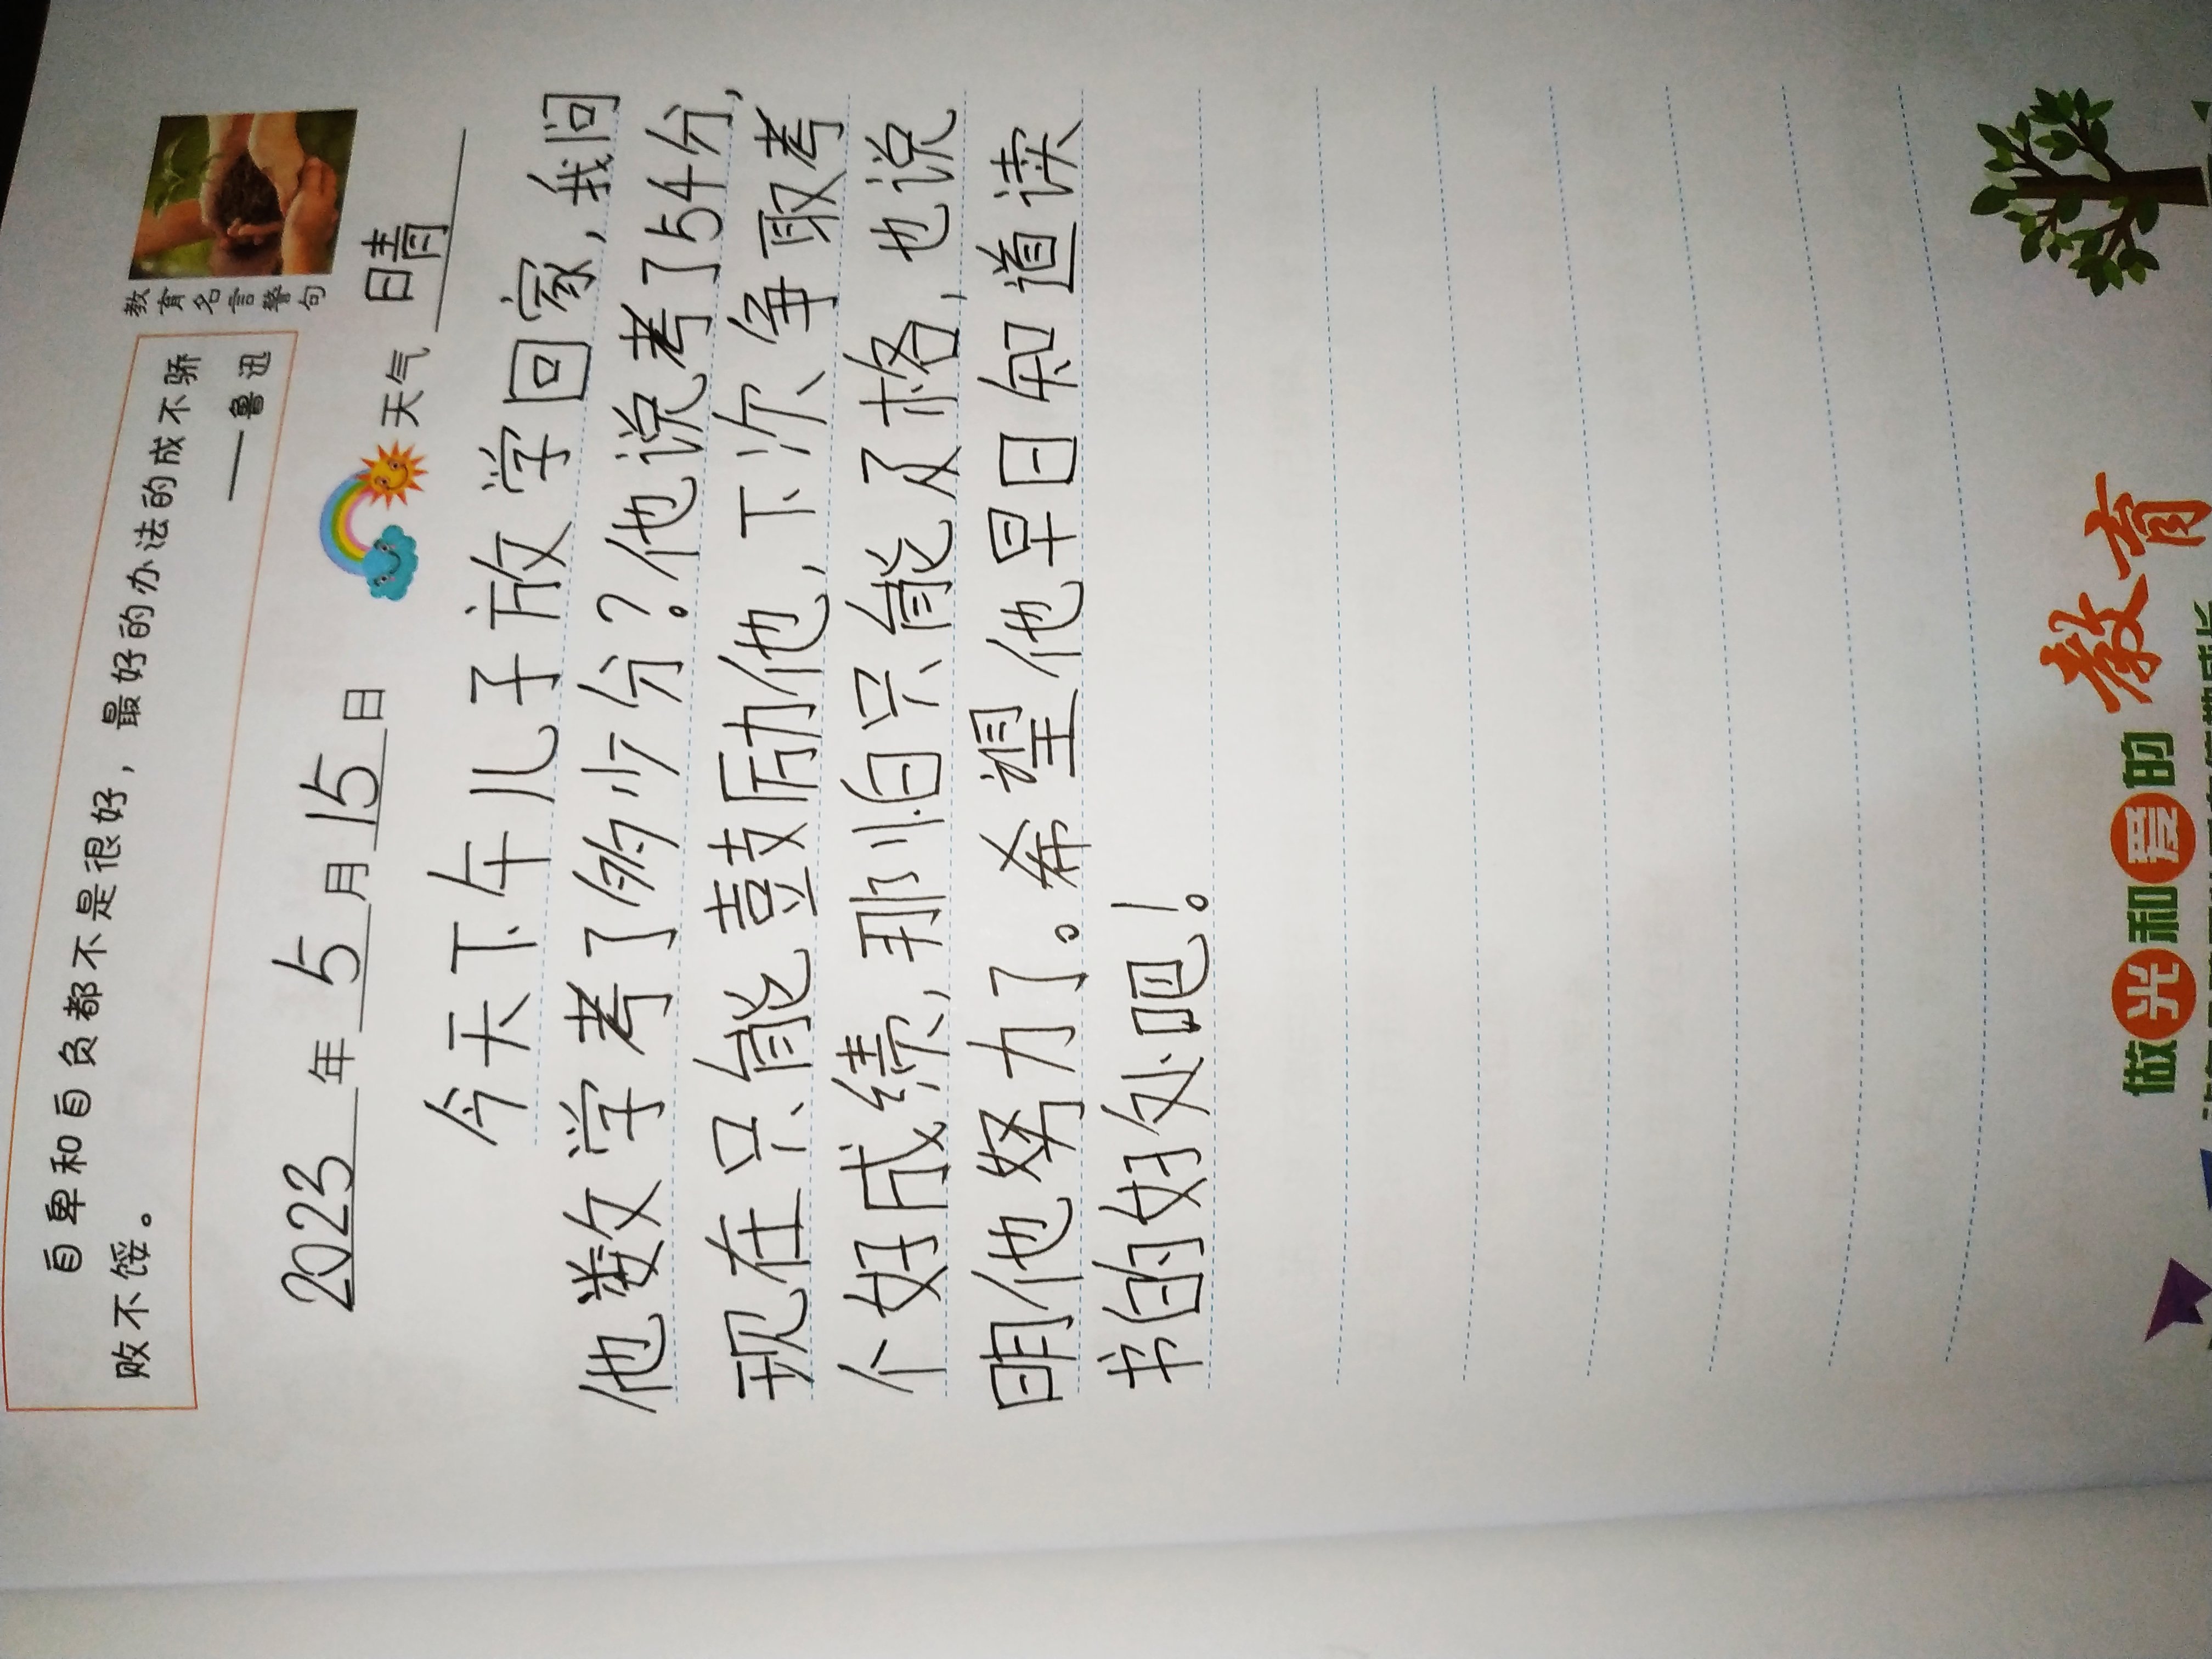 教育名言警句
自卑和自负都不是很好，最好的办法的成不骄
败不馁。
——鲁迅
2023年5月15日 天气 晴
今天下午儿子放学回家，我问
他数学考了多少分？。他说考了54分，
现在只能鼓励他，下次争取考
个好成绩，那怕只能及格，也说
明他努力了。希望他早日知道读
书的好处吧！。
做光和爱的教育